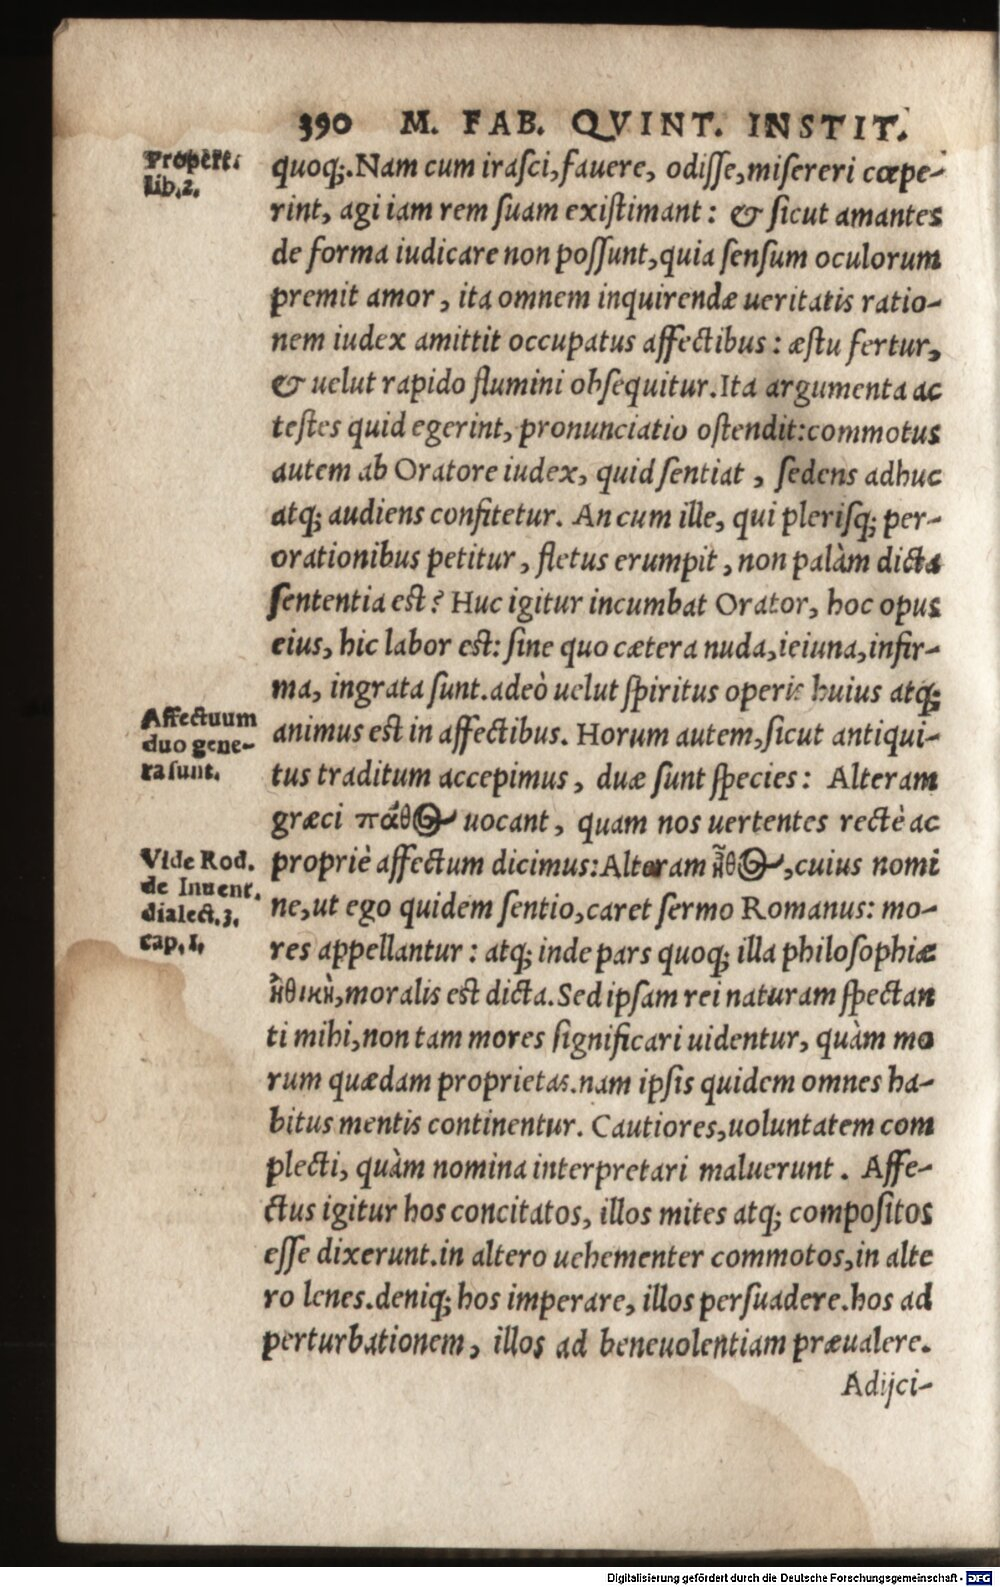 390 M. FAB. QVINT. INSTIT.
Propert.
lib.2.
quoq;. Nam cum irasci, fauere, odisse, misereri cœpe-
rint, agi iam rem suam existimant: & sicut amantes
de forma iudicare non possunt, quia sensum oculorum
premit amor, ita omnem inquirendæ ueritatis ratio-
nem iudex amittit occupatus affectibus: æstu fertur,
& uelut rapido flumini obsequitur. Ita argumenta ac
testes quid egerint, pronunciatio ostendit: commotus
autem ab Oratore iudex, quid sentiat, sedens adhuc
atq; audiens confitetur. An cum ille, qui plerisq; per-
orationibus petitur, fletus erumpit, non palàm dicta
sententia est? Huc igitur incumbat Orator, hoc opus
eius, hic labor est: sine quo cætera nuda, ieiuna, infir-
ma, ingrata sunt. adeò uelut spiritus operis huius atq;
Affectuum
duo gene-
ra sunt.
animus est in affectibus. Horum autem, sicut antiqui-
tus traditum accepimus, duæ sunt species: Alteram
græci πάθος uocant, quam nos uertentes rectè ac
Vide Rod.
de Inuent.
dialect.3.
cap.1.
propriè affectum dicimus: Alteram ἦθος, cuius nomi
ne, ut ego quidem sentio, caret sermo Romanus: mo-
res appellantur: atq; inde pars quoq; illa philosophiæ
ἠθικὴ, moralis est dicta. Sed ipsam rei naturam spectan
ti mihi, non tam mores significari uidentur, quàm mo
rum quædam proprietas. nam ipsis quidem omnes ha-
bitus mentis continentur. Cautiores, uoluntatem com
plecti, quàm nomina interpretari maluerunt. Affe-
ctus igitur hos concitatos, illos mites atq; compositos
esse dixerunt. in altero uehementer commotos, in alte
ro lenes. deniq; hos imperare, illos persuadere. hos ad
perturbationem, illos ad beneuolentiam præualere.
Adijci-
Digitalisierung gefördert durch die Deutsche Forschungsgemeinschaft - DFG